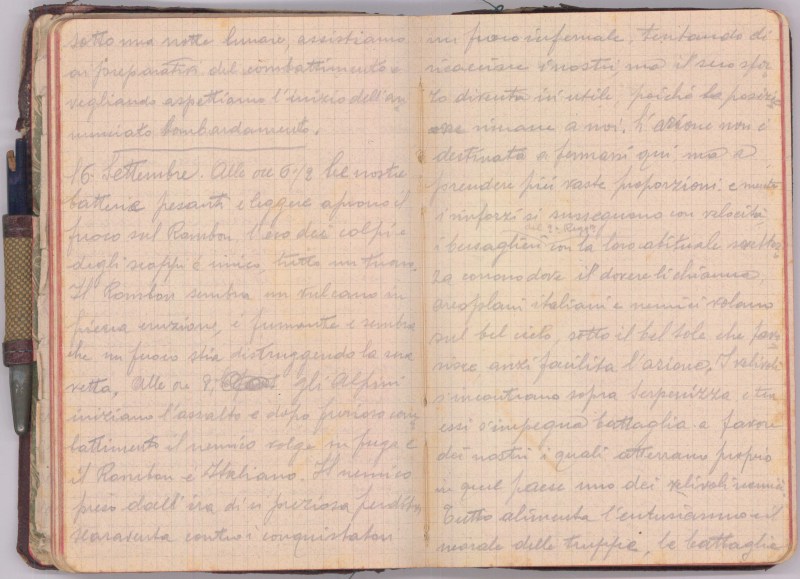 sotto una notte lunare, assistiamo
ai preparativi del combattimento e
vegliando aspettiamo l'inizio dell'an
nunciato bombardamento.
16 Settembre. Alle ore 6 1/2 le nostre
batterie pesanti e leggere aprono il
fuoco sul Rombon, l'eco dei colpi e
degli scoppi è unico, tutto un tuono.
Il Rombon sembra un vulcano in
piena eruzione, è fumante e sembra
che un fuoco stia distruggendo la sua
vetta. Alle ore 8, gli Alpini
iniziano l'assalto e dopo furioso com
battimento il nemico volge in fuga e
il Rombon è Italiano. Il nemico
preso dall'ira di sì preziosa perdita
scaraventa contro i conquistatori
un fuoco infernale, tentando di
ricacciare i nostri, ma il suo sfor
zo diventa inutile, poiché la posizio
ne rimane a noi. L'azione non è
destinata a fermarsi qui ma a
prendere più vaste proporzioni e
i rinforzi si susseguono con velocità,
i bersaglieri con la loro abituale sveltez
za corrono dove il dovere li chiama,
areoplani italiani e nemici volano
sul bel cielo, sotto il bel sole che favo
risce, anzi facilita l'azione. I velivoli
s'incontrano sopra Serpenizza e tra
essi s'impegna battaglia a favore
dei nostri i quali atterrano proprio
in quel paese uno dei velivoli nemici.
Tutto alimenta l'entusiasmo e il
morale delle truppe, la battaglia